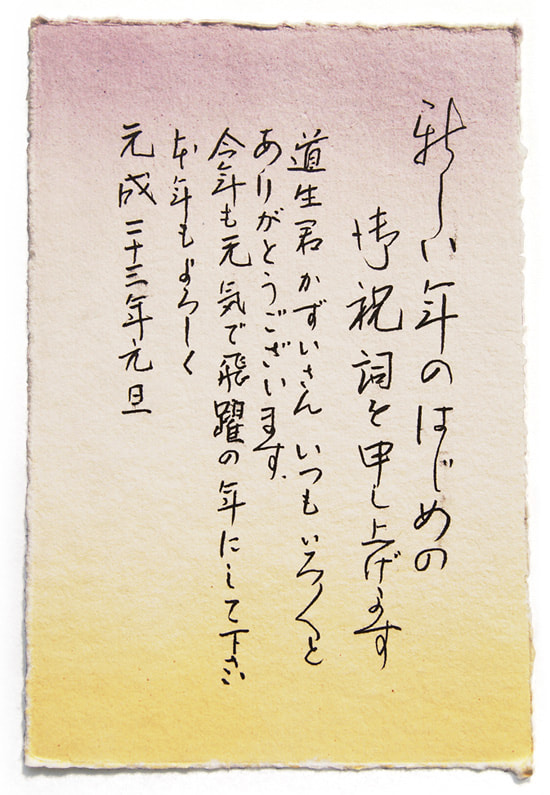 新しい年のはじめの
御祝詞を申し上げます
道生君 かずいさん いつも いろ〱と
ありがとうございます.
今年も元気で飛躍の年にして下さい
本年もよろしく
元成二十三年元旦